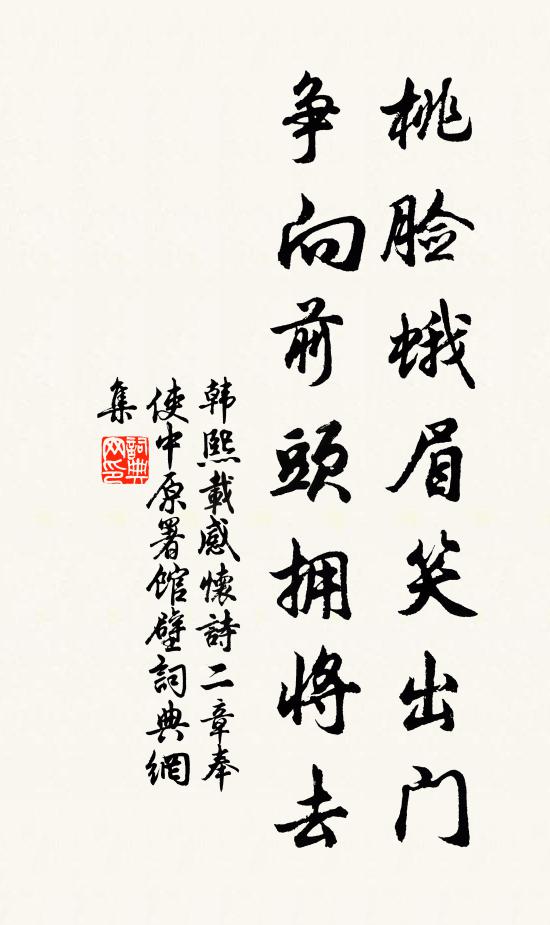 桃脸蛾眉笑出门
争向前頭拥將去
韩熙載感懷詩二章奉
使中原署馆壁詞典網
集
詞典
网印